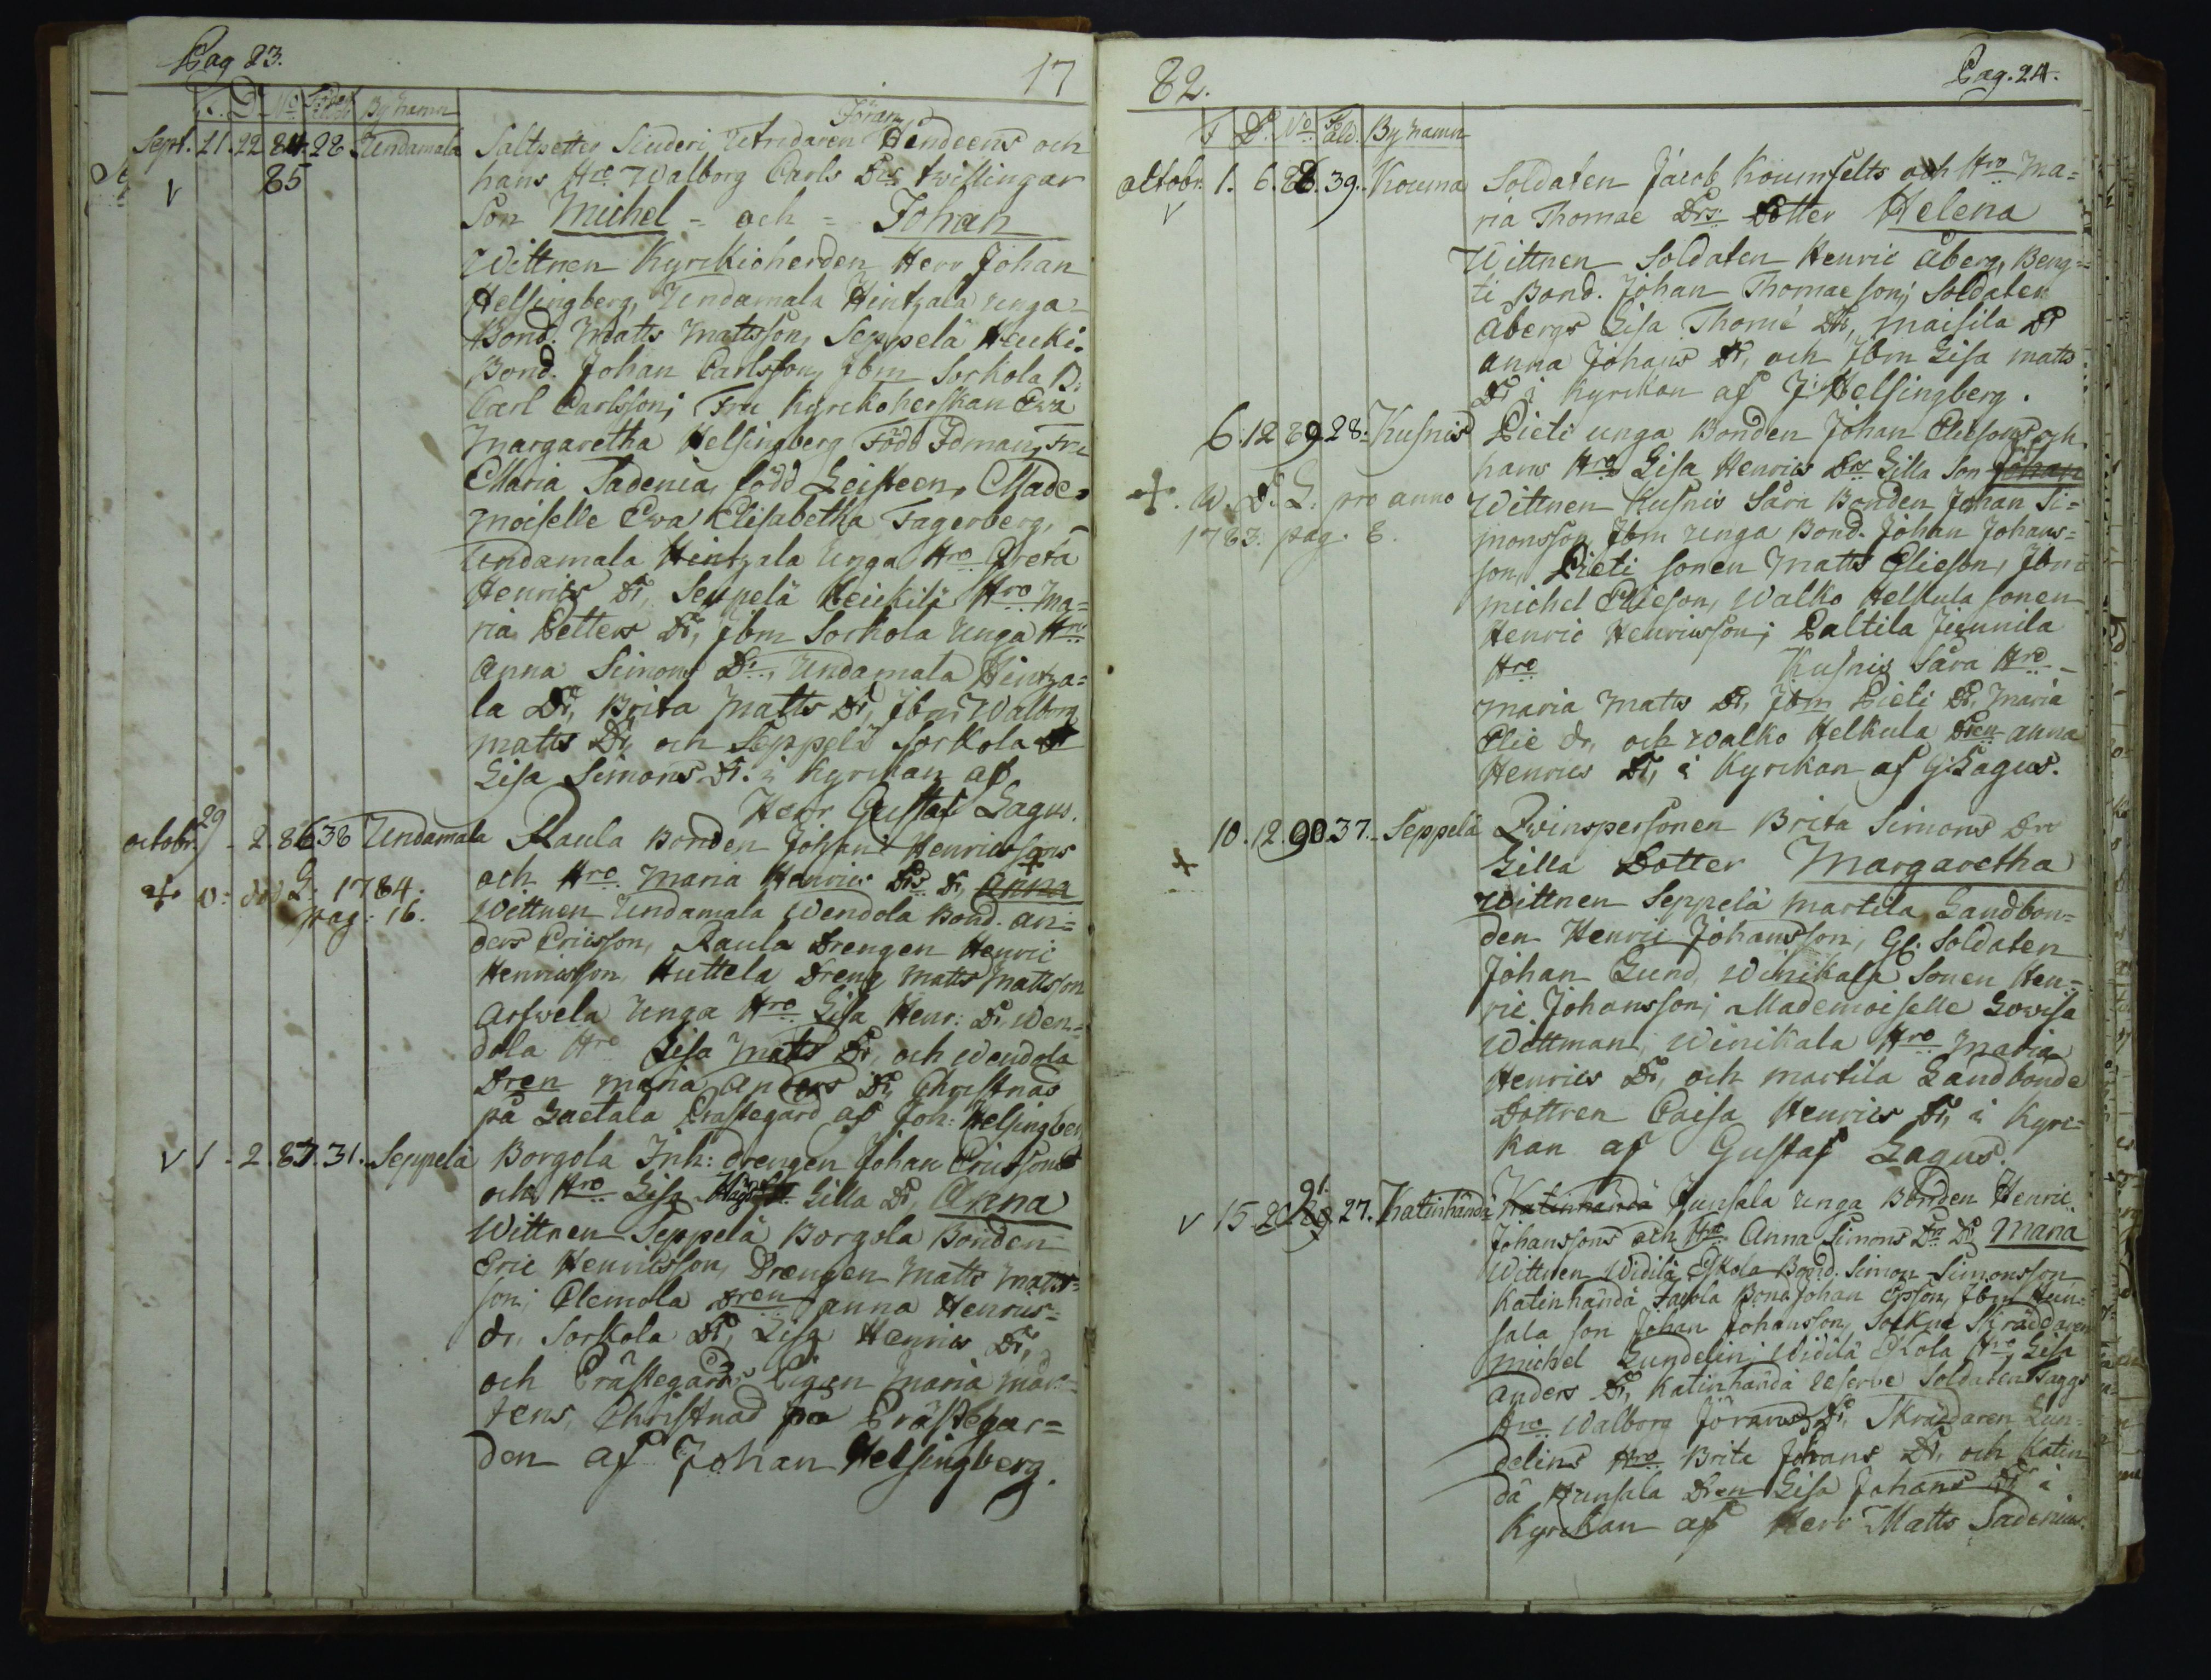 Pag 23.
17
F. D. No By namn
Göran
Sept. 21. 22 84. 28 Undamala Saltpetter Siuderi Utridaren Hendeens och
85 hans Hro Walborg Carls Drs twillingar
Son Michel - och - Johan
Wittnen Kyrckioherden Herr Johan
Helsingberg, Undamala Hintzala unga
Bond. Matts Mattsson, Seppelä Heicki.
Bond. Johan Carlsson, Jbm Sorkola B.
Carl Carlsson; Fru Kyrckoherskan Ewa
Margaretha Helsingberg Född Idman, Fru
Maria Tadenia, född Leisteen, Made-
moiselle Ewa Elisabetha Fagerberg,
Undamala Hintzala Unga Hro Greta
Henrics Dr, Seppelä Heickilä Hro Ma=
ria Petters Dr, Jbm Sorkola Unga Hro
Anna Simons Dr, Undamala Hintza=
la Dr, Brita Matts Dr, Jbm Walborg
Matts Dr, och Seppelä Sorkola
Lisa Simons Dr. i Kyrckan af
Herr Gustaf Lagus.
octobr. 29 - 2. 86 38 Undamala Raula Bonden Johan Henricssons
och Hro Maria Henrics Drs Dr, Anna
v: L: 1784. pag: 16. Wittnen Undamala Wendola Bond. An=
ders Ericsson, Raula Drengen Henric
Henricsson, Huttela Dreng Matts Mattsson
Arfwela Unga Hro Lisa Henr: Dr, Wen=
dola Hro Lisa Matts Dr, och Wendola
Dren Maria Anders Dr, Christnad
på Laetala Prästegård af Joh: Helsingber
1 - 2. 87. 31. Seppelä Borgola Inh: drengen Johan Ericssons
och Hro Lisa Gilla Dr, Anna
Wittnen Seppelä Borgola Bonden
Eric Henricsson, Drengen Matts Matts=
son; Clemola Dren Anna Henrics=
dr, Sorkola Dr, Lisa Henrics Dr,
och Prästegårds Pigan Maria Mår=
tens, Christnad på Prästegår=
den af Johan Helsingberg.
82.
Pag. 24.
F D. No åld. By namn
octobr. 1. 6. 88. 39. Kouma Soldaten Jacob Koumfelts och Hro Ma=
ria Thomae Drs Dotter Helena
Wittnen Soldaten Henric Åberg, Beng=
ti Bond. Johan Thomaeson; Soldaten
Åbergs Lisa Thomé Dr, Maisila Dr
Anna Johans Dr, och Jbm Lisa Matts
Dr i Kyrckan af J: Helsingberg.
6. 12 89 28. Kusnis Pieti unga Bonden Johan Eliesons och
hans Hro Lisa Henrics Drs Gilla Son Johan
pro anno 1783. pag. 8. Wittnen Kusnis Såra Bonden Johan Si=
monsson, Jbm unga Bond. Johan Johans=
son, Pieti sonen Matts Elieson, Jbm
Michel Elieson, Walko Helkula sonen
Henric Henricsson; Paltila Junnila
Hro Kusnis Såra Hro
Maria Matts Dr, Jbm Pieti Dr, Maria
Elie dr, och Walko Helkula Dren Anna
Henrics Dr, i Kyrckan af G: Lagus.
10. 12. 90 37. Seppelä Qwinspersonen Brita Simons Drs
Gilla Dotter Margaretha
Wittnen Seppelä Martila Landbon=
den Henric Johansson, Gl. Soldaten
Johan Lund, Winikala Sonen Hen=
ric Johansson; Mademoiselle Lowisa
Wittman, Winikala Hro Maria
Henrics Dr, och Martila Landbonde
Dottren Caisa Henrics Dr, i Kyrc=
kan af Gustaf Lagus.
15. 20. 91. 27. Katinhändä Katinhändä Junsala unga Bonden Henric
Johanssons och Hro Anna Simons Drs Dr, Maria
Wittnen Widilä Eskola Bond. Simon Simonsson
Katinhändä Bond Johan Jbm Hun=
sala son Johan Johansson, Sockne Skräddaren
Michel Lundelin; Widilä Eskola Hro Lisa
Anders Dr, Katinhändä Reserve Soldaten Taggs
Hro Walborg Jörans Dr, Skräddaren Lun=
delins Hro Brita Johans Dr, och Katin
dä Hunsala Dren Lisa Johans Dr i
Kyrckan af Herr Matts Tadenius.